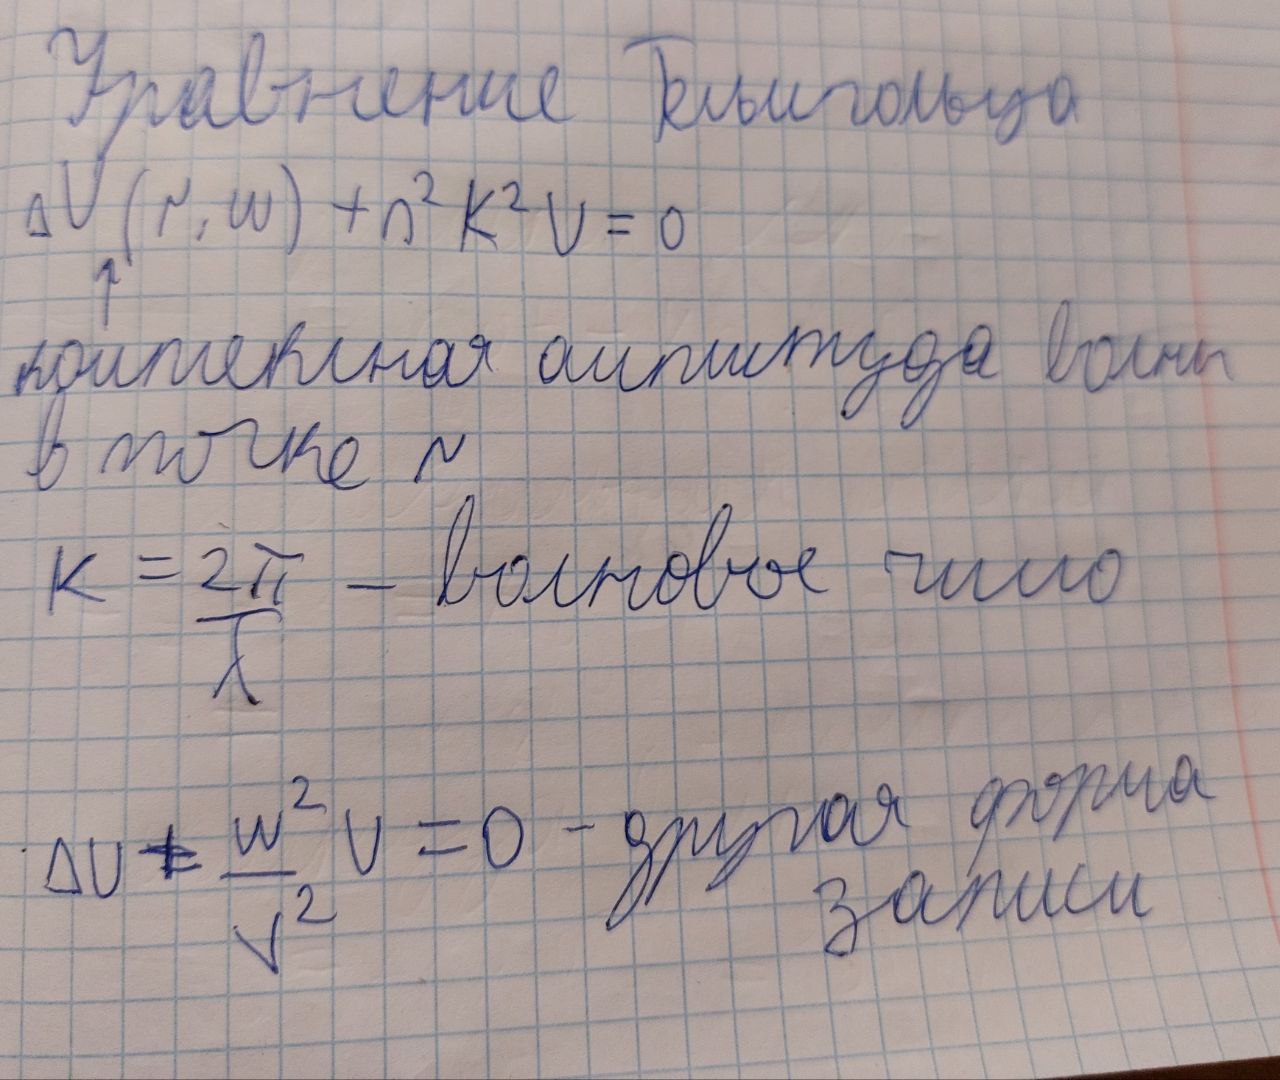 Уравнение Гельмгольца
ΔU(r, w) + n²K²U = 0
↑
комплексная амплитуда волны
в точке r
K = 2π/λ – волновое число
ΔU + w²/v² U = 0 – другая форма
записи